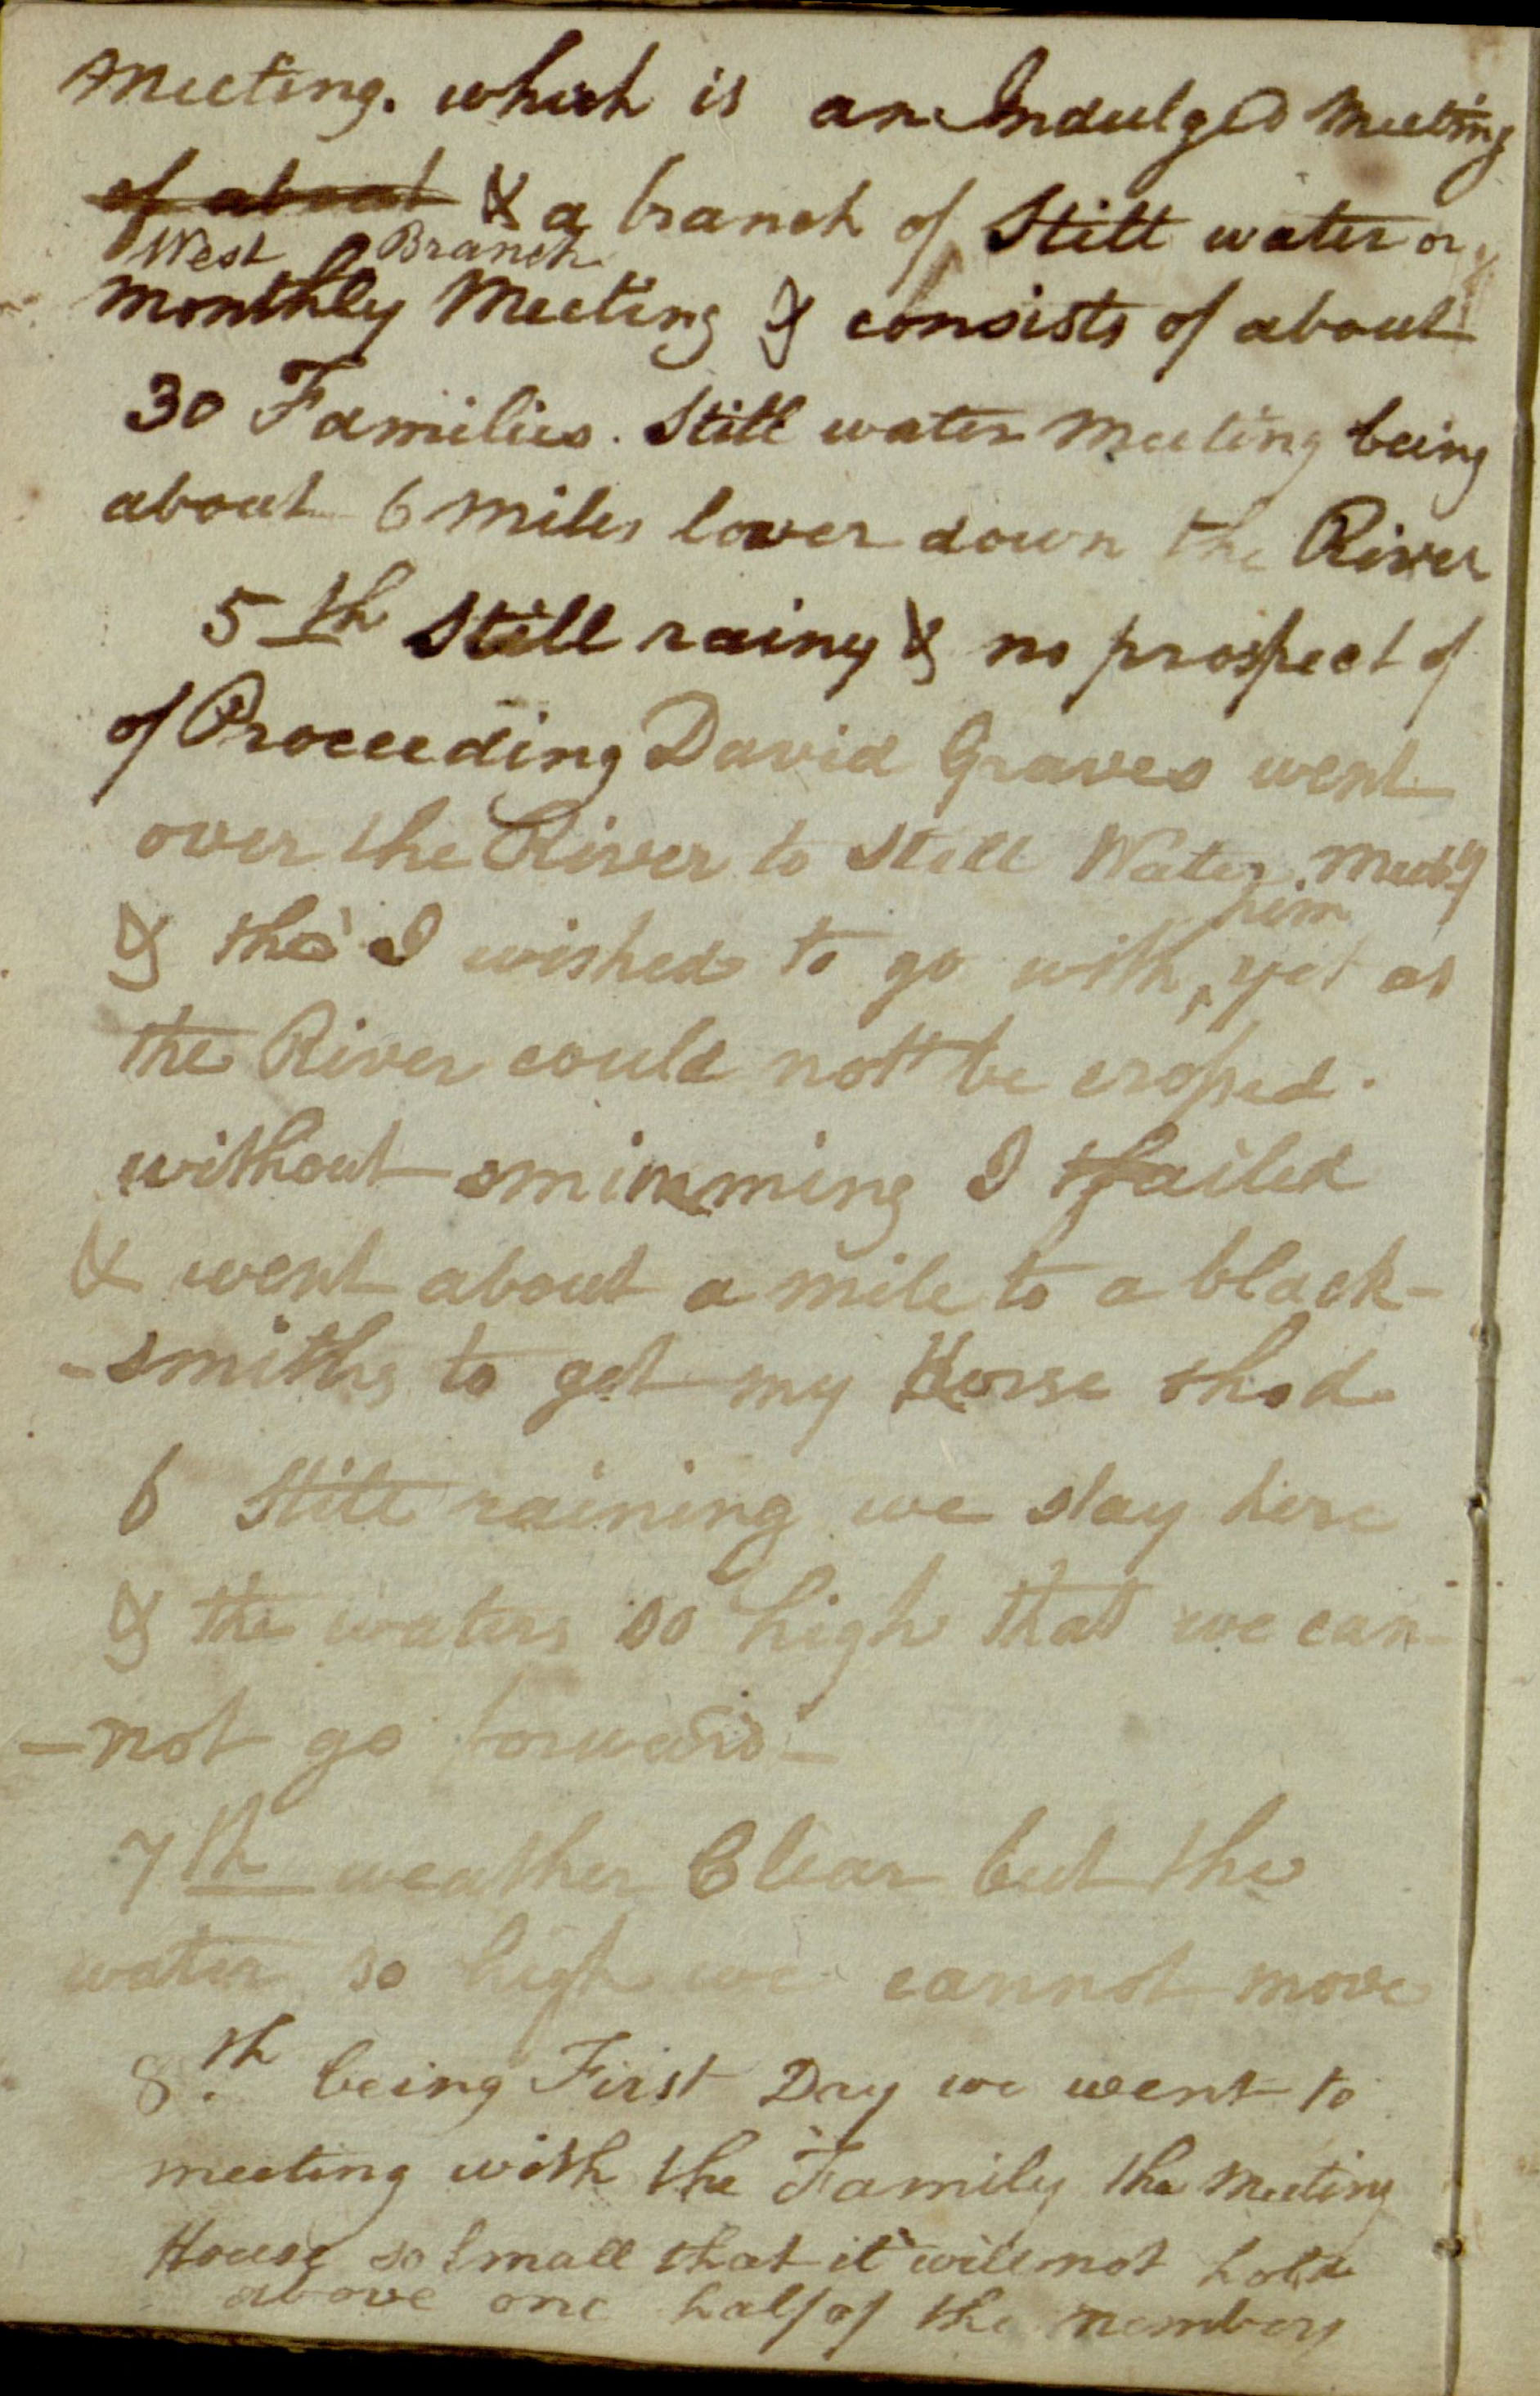 Meeting. which is an Indulged Meeting
of about & a branch of Still water or
West Branch
Monthly Meeting & consists of about
30 Families. Still water Meeting being
about 6 Miles lower down the River
5th Still rainy & no prospect of
of Proceeding David Graves went
over the River to Still Water Meetg
him
& tho' I wished to go with ‸ yet as
the River could not be crossed.
without smimming I failed
& went about a mile to a black-
-smiths to get my Horse shod
6 Still raining we stay here
& the waters so high that we can-
-not go forward-
7th weather Clear but the
water so high we cannot move
8th being First Day we went to
meeting with the Family the Meeting
House so Small that it will not hold
above one half of the members